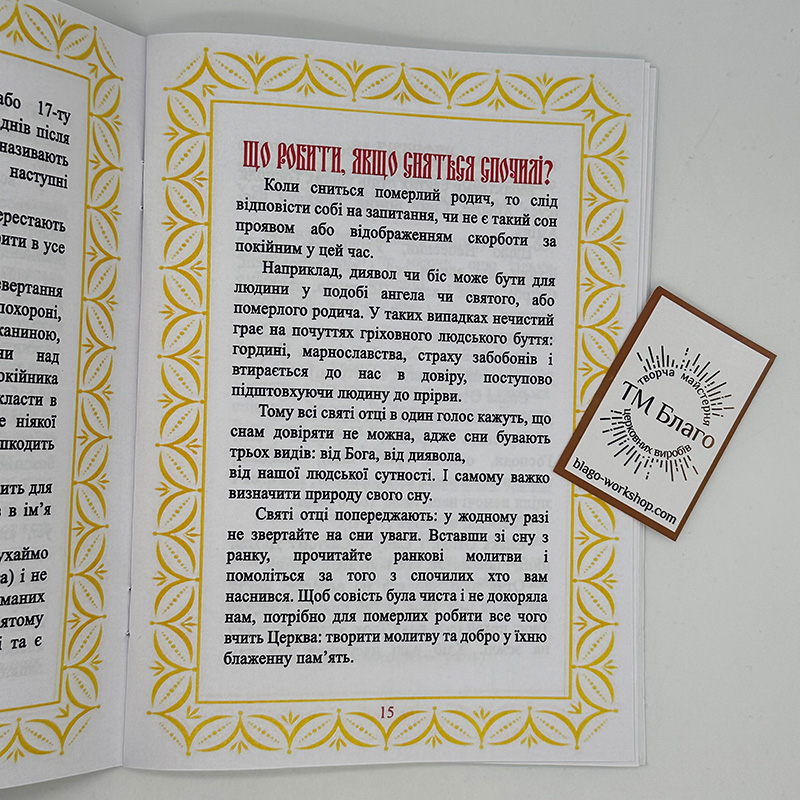 або 17-ту
днів після
називають
наступні
ерестають
рити в усе
звертання
похороні,
каниною,
ни над
окійника
класти в
е ніякої
шкодить
ить для
в ім'я
ухаймо
га) і не
маних
ятому
і та є
ЩО РОБИТИ, ЯКЩО СНЯТЬСЯ СПОЧИЛІ?
Коли сниться померлий родич, то слід
відповісти собі на запитання, чи не є такий сон
проявом або відображенням скорботи за
покійним у цей час.
Наприклад, диявол чи біс може бути для
людини у подобі ангела чи святого, або
померлого родича. У таких випадках нечистий
грає на почуттях гріховного людського буття:
гордині, марнославства, страху забобонів і
втирається до нас в довіру, поступово
підштовхуючи людину до прірви.
Тому всі святі отці в один голос кажуть, що
снам довіряти не можна, адже сни бувають
трьох видів: від Бога, від диявола,
від нашої людської сутності. І самому важко
визначити природу свого сну.
Святі отці попереджають: у жодному разі
не звертайте на сни уваги. Вставши зі сну з
ранку, прочитайте ранкові молитви і
помоліться за того з спочилих хто вам
наснився. Щоб совість була чиста і не докоряла
нам, потрібно для померлих робити все чого
вчить Церква: творити молитву та добро у їхню
блаженну пам'ять.
15
творча майстерня
ТМ Благо
церковних виробів
blago-workshop.com